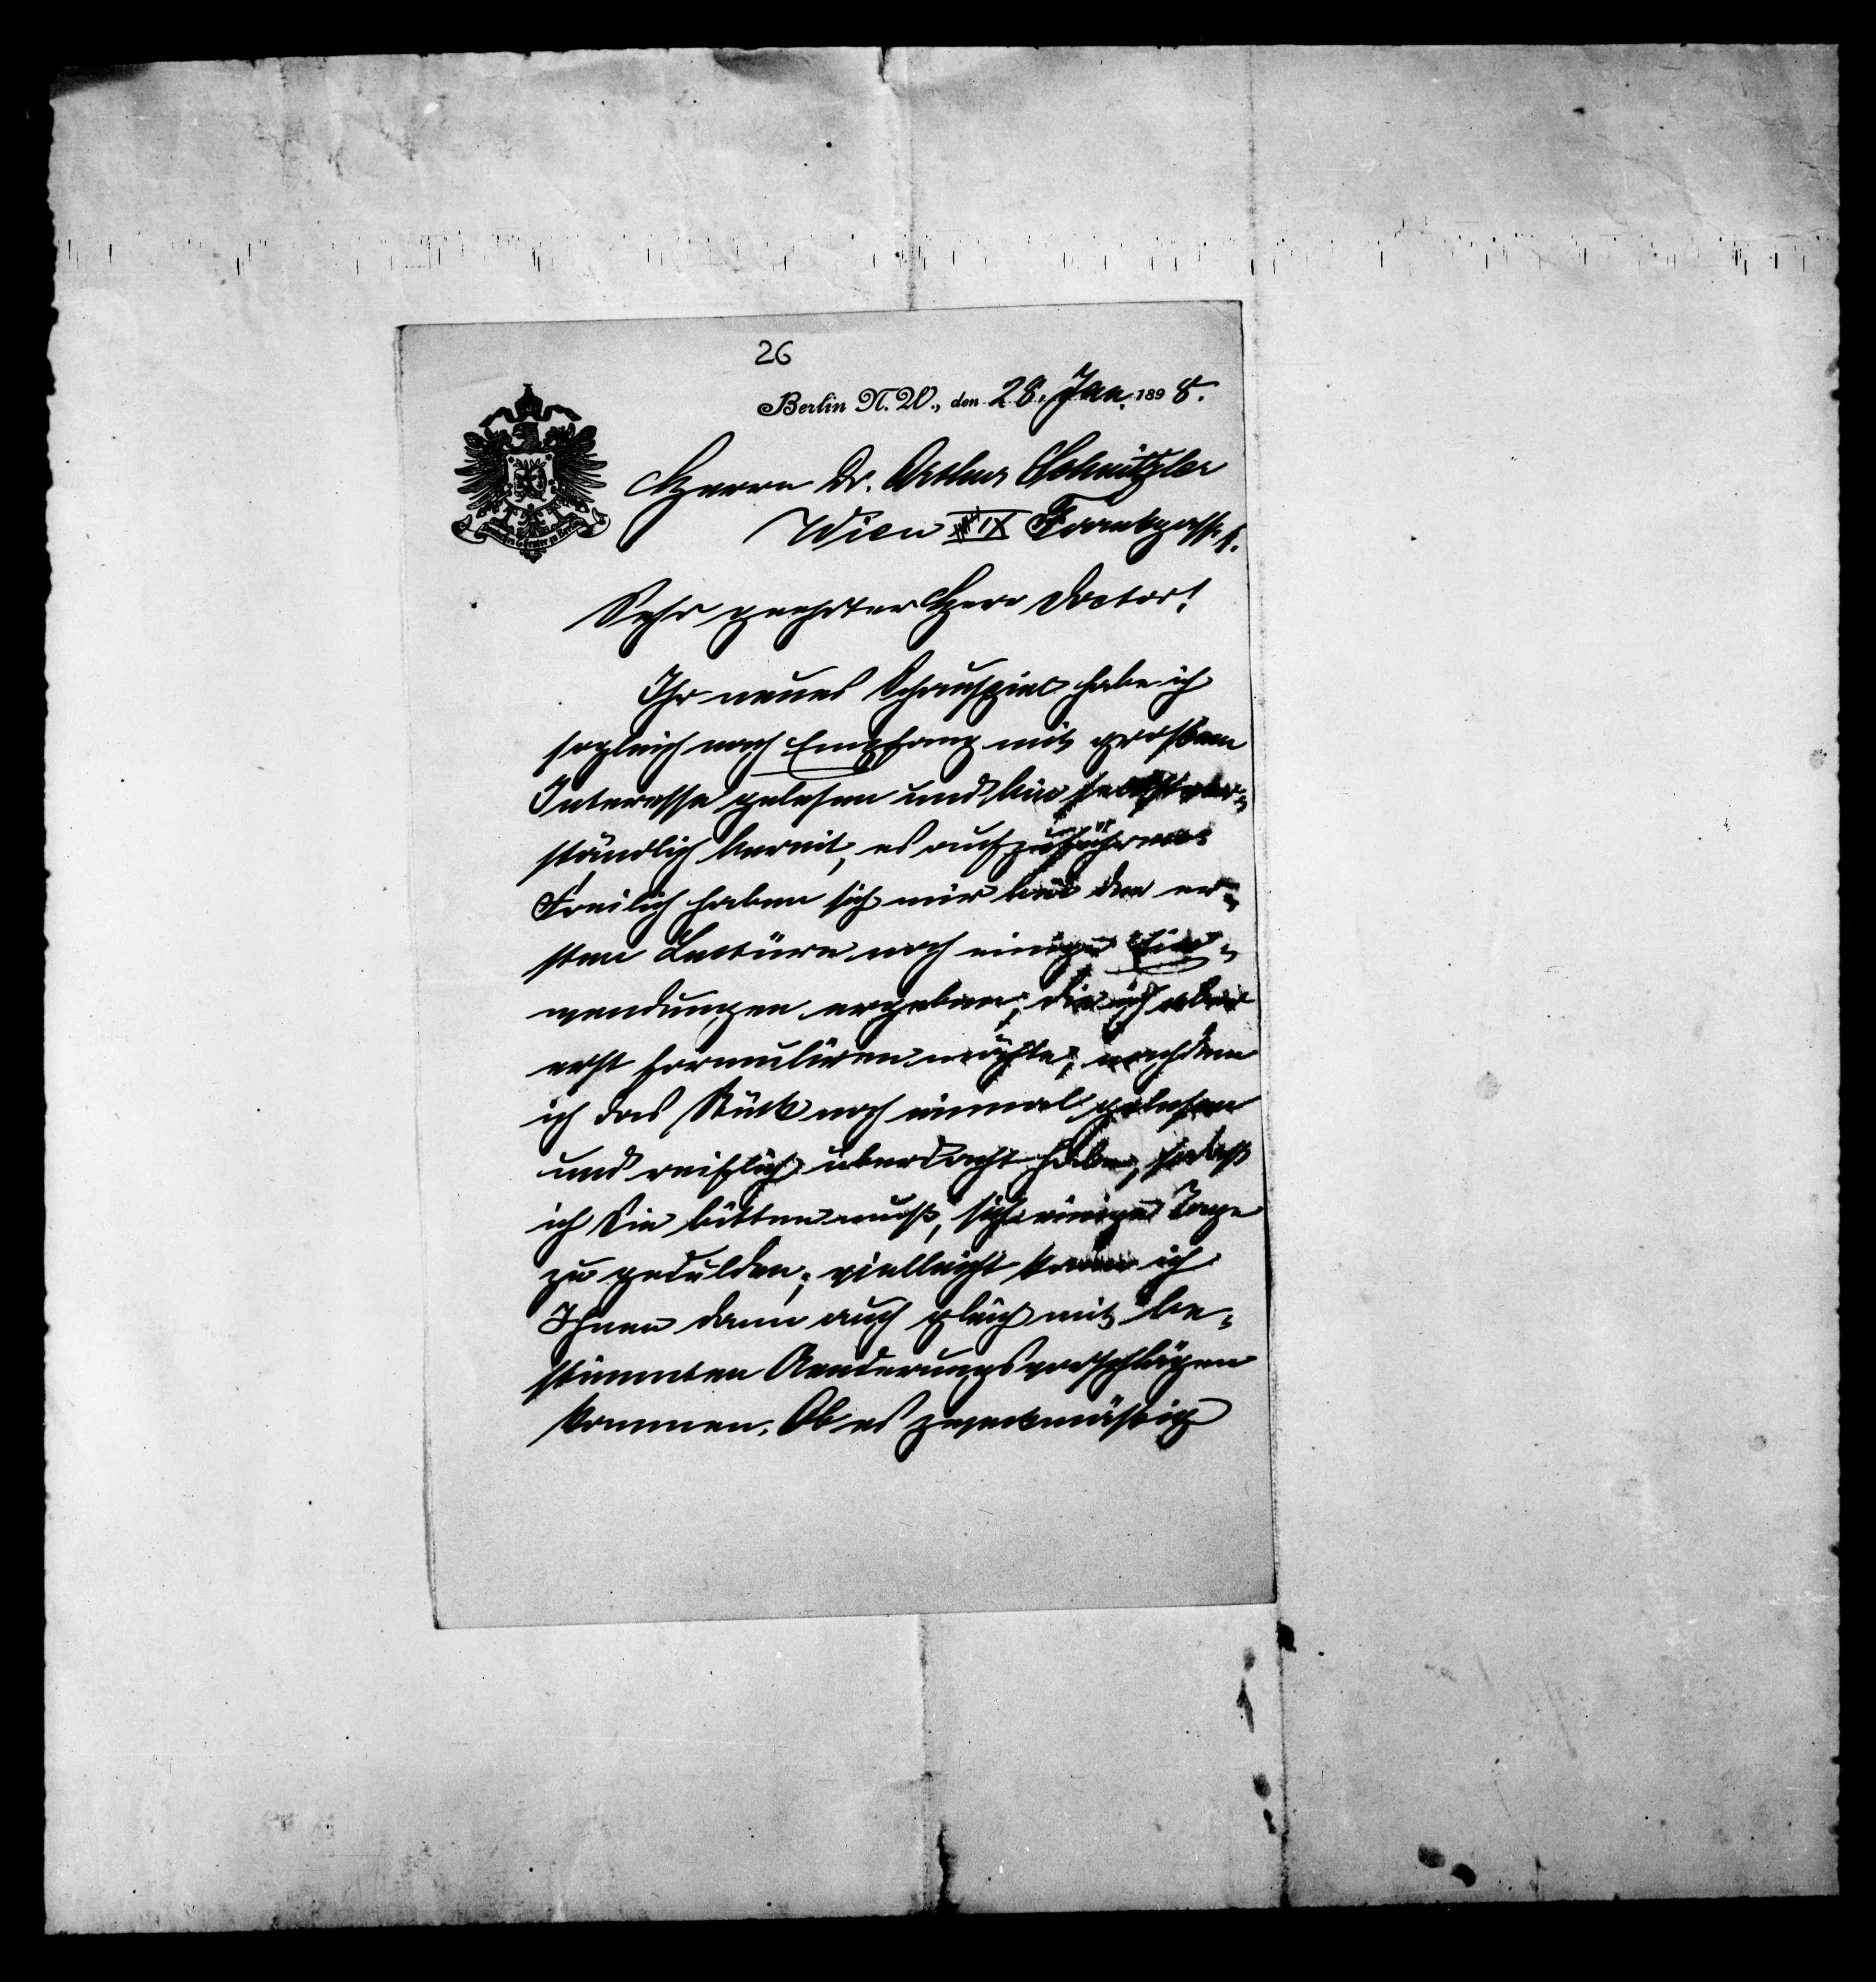 26
Berlin N.W., den 28. Jan. 1898.
Deutsches Theater zu Berlin
Herrn Dr. Arthur Schnitzler
Wien IX Frankgasse 1.
Sehr geehrter Herr Doctor!
Ihr neues Schauspiel habe ich
sogleich nach Empfang mit großem
Interesse gelesen und bin selbstver-
ständlich bereit, es aufzuführen.
Freilich haben sich mir bei der er-
sten Lectüre noch einige Ein-
wendungen ergeben, die ich aber
erst formuliren möchte, nachdem
ich das Stück noch einmal gelesen
und reiflich überdacht habe, sodaß
ich Sie bitten muß, sich einige Tage
zu gedulden; vielleicht kann ich
Ihnen dann auch gleich mit be-
stimmten Aenderungsvorschlägen
kommen. Ob es zweckmäßig